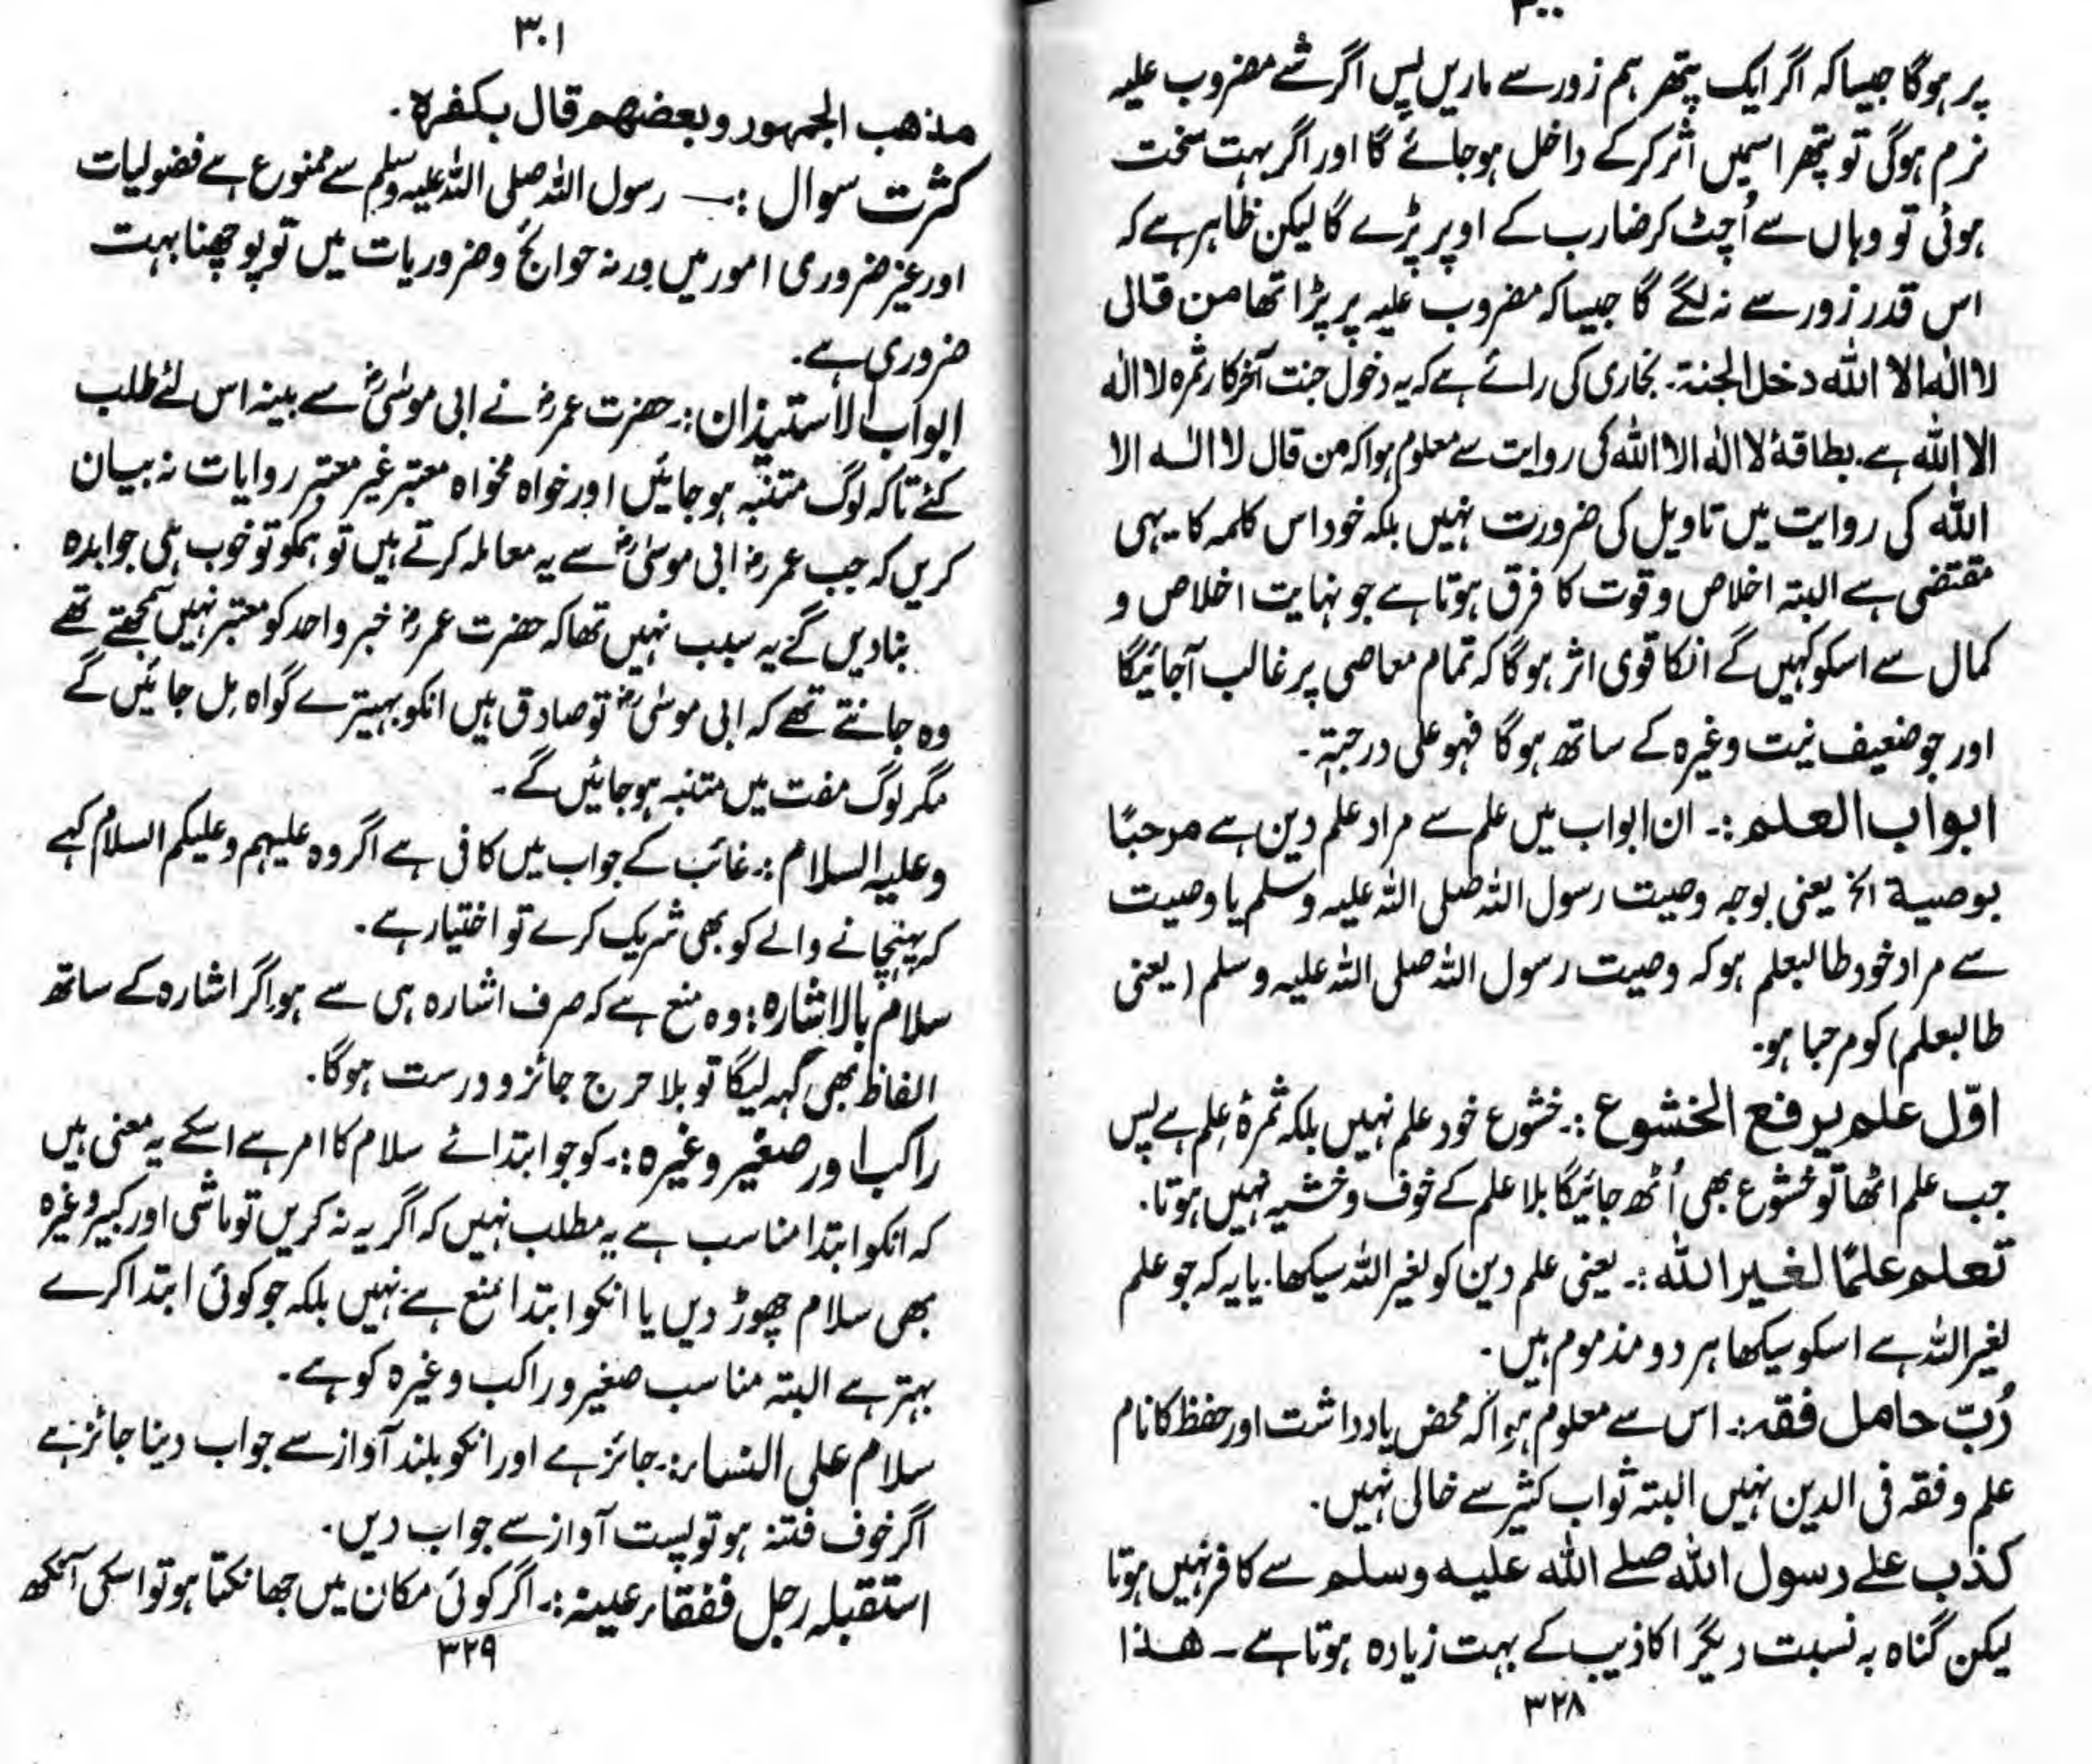 ۳۰۰
پر ہوگا جیسا کہ اگر ایک پتھر ہم زور سے ماریں پس اگر شے مضروب علیہ
نرم ہوگی تو پتھر اسمیں اثر کرکے داخل ہوجائے گا اور اگر بہت سخت
ہوئی تو وہاں سے اُچٹ کر ضارب کے اوپر پڑے گا لیکن ظاہر ہے کہ
اس قدر زور سے نہ لگے گا جیسا کہ مضروب علیہ پر پڑا تھا من قال
لا الٰہ الا اللہ دخل الجنۃ۔ بخاری کی رائے ہے کہ یہ دخول جنت آخرکار ثمرہ لا الٰہ
الا اللہ ہے۔ بطاقۂ لا الٰہ الا اللہ کی روایت سے معلوم ہوا کہ من قال لا الٰہ الا
اللہ کی روایت میں تاویل کی ضرورت نہیں بلکہ خود اس کلمہ کا یہی
مقتضی ہے البتہ اخلاص و قوت کا فرق ہوتا ہے جو نہایت اخلاص و
کمال سے اسکو کہیں گے انکا قوی اثر ہوگا کہ تمام معاصی پر غالب آجائیگا
اور جو ضعیف نیت وغیرہ کے ساتھ ہوگا فہو علی درجتہ۔
ابواب العلم :۔ ان ابواب میں علم سے مراد علم دین ہے مرحبًا
بوصیۃ الخ یعنی بوجہ وصیت رسول اللہ صلی اللہ علیہ وسلم یا وصیت
سے مراد خود طالبعلم ہو کہ وصیت رسول اللہ صلی اللہ علیہ وسلم (یعنی
طالبعلم) کو مرحبا ہو۔
اوّل علم یرفع الخشوع :۔ خشوع خود علم نہیں بلکہ ثمرۂ علم ہے پس
جب علم اٹھا تو خشوع بھی اُٹھ جائیگا بلا علم کے خوف و خشیہ نہیں ہوتا۔
تعلم علمًا لغیر اللہ :۔ یعنی علم دین کو لغیر اللہ سیکھا۔ یا یہ کہ جو علم
لغیر اللہ ہے اسکو سیکھا ہر دو مذموم ہیں۔
رُبّ حامل فقہ :۔ اس سے معلوم ہوا کہ محض یادداشت اور حفظ کا نام
علم و فقہ فی الدین نہیں البتہ ثواب کثیر سے خالی نہیں۔
کذب علے رسول اللہ صلے اللہ علیہ وسلم سے کافر نہیں ہوتا
لیکن گناہ بہ نسبت دیگر اکاذیب کے بہت زیادہ ہوتا ہے۔ ھذا
۳۲۸
۳۰۱
مذھب الجمہور وبعضھم قال بکفرہ۔
کثرت سوال :۔ رسول اللہ صلی اللہ علیہ وسلم سے ممنوع ہے فضولیات
اور غیر ضروری امور میں ورنہ حوائج و ضروریات میں تو پوچھنا بہت
ضروری ہے۔
ابواب الاستیذان :۔ حضرت عمرؓ نے ابی موسٰیؓ سے بینہ اس لئے طلب
کئے تاکہ لوگ متنبہ ہوجائیں اور خواہ مخواہ معتبر غیر معتبر روایات نہ بیان
کریں کہ جب عمرؓ ابی موسٰیؓ سے یہ معاملہ کرتے ہیں تو ہمکو تو خوب ہی جوابدہ
بنادیں گے یہ سبب نہیں تھا کہ حضرت عمرؓ خبر واحد کو معتبر نہیں سمجھتے تھے
وہ جانتے تھے کہ ابی موسٰیؓ تو صادق ہیں انکو بہیترے گواہ مل جائیں گے
مگر لوگ مفت میں متنبہ ہوجائیں گے۔
وعلیہ السلام :۔ غائب کے جواب میں کافی ہے اگر وہ علیہم وعلیکم السلام کہے
کہ پہنچانے والے کو بھی شریک کرے تو اختیار ہے۔
سلام بالاشارہ : وہ منع ہے کہ صرف اشارہ ہی سے ہو اگر اشارہ کے ساتھ
الفاظ بھی کہہ لیگا تو بلا حرج جائز و درست ہوگا۔
راکب اور صغیر وغیرہ :۔ کو جو ابتدائے سلام کا امر ہے اسکے یہ معنی ہیں
کہ انکو ابتدا مناسب ہے یہ مطلب نہیں کہ اگر یہ نہ کریں تو ماشی اور کبیر وغیرہ
بھی سلام چھوڑ دیں یا انکو ابتدا منع ہے نہیں بلکہ جو کوئی ابتدا کرے
بہتر ہے البتہ مناسب صغیر و راکب وغیرہ کو ہے۔
سلام علی النساء :۔ جائز ہے اور انکو بلند آواز سے جواب دینا جائز ہے
اگر خوف فتنہ ہو تو پست آواز سے جواب دیں۔
استقبلہ رجل ففقاء عینہ :۔ اگر کوئی مکان میں جھانکتا ہو تو اسکی آنکھ
۳۲۹